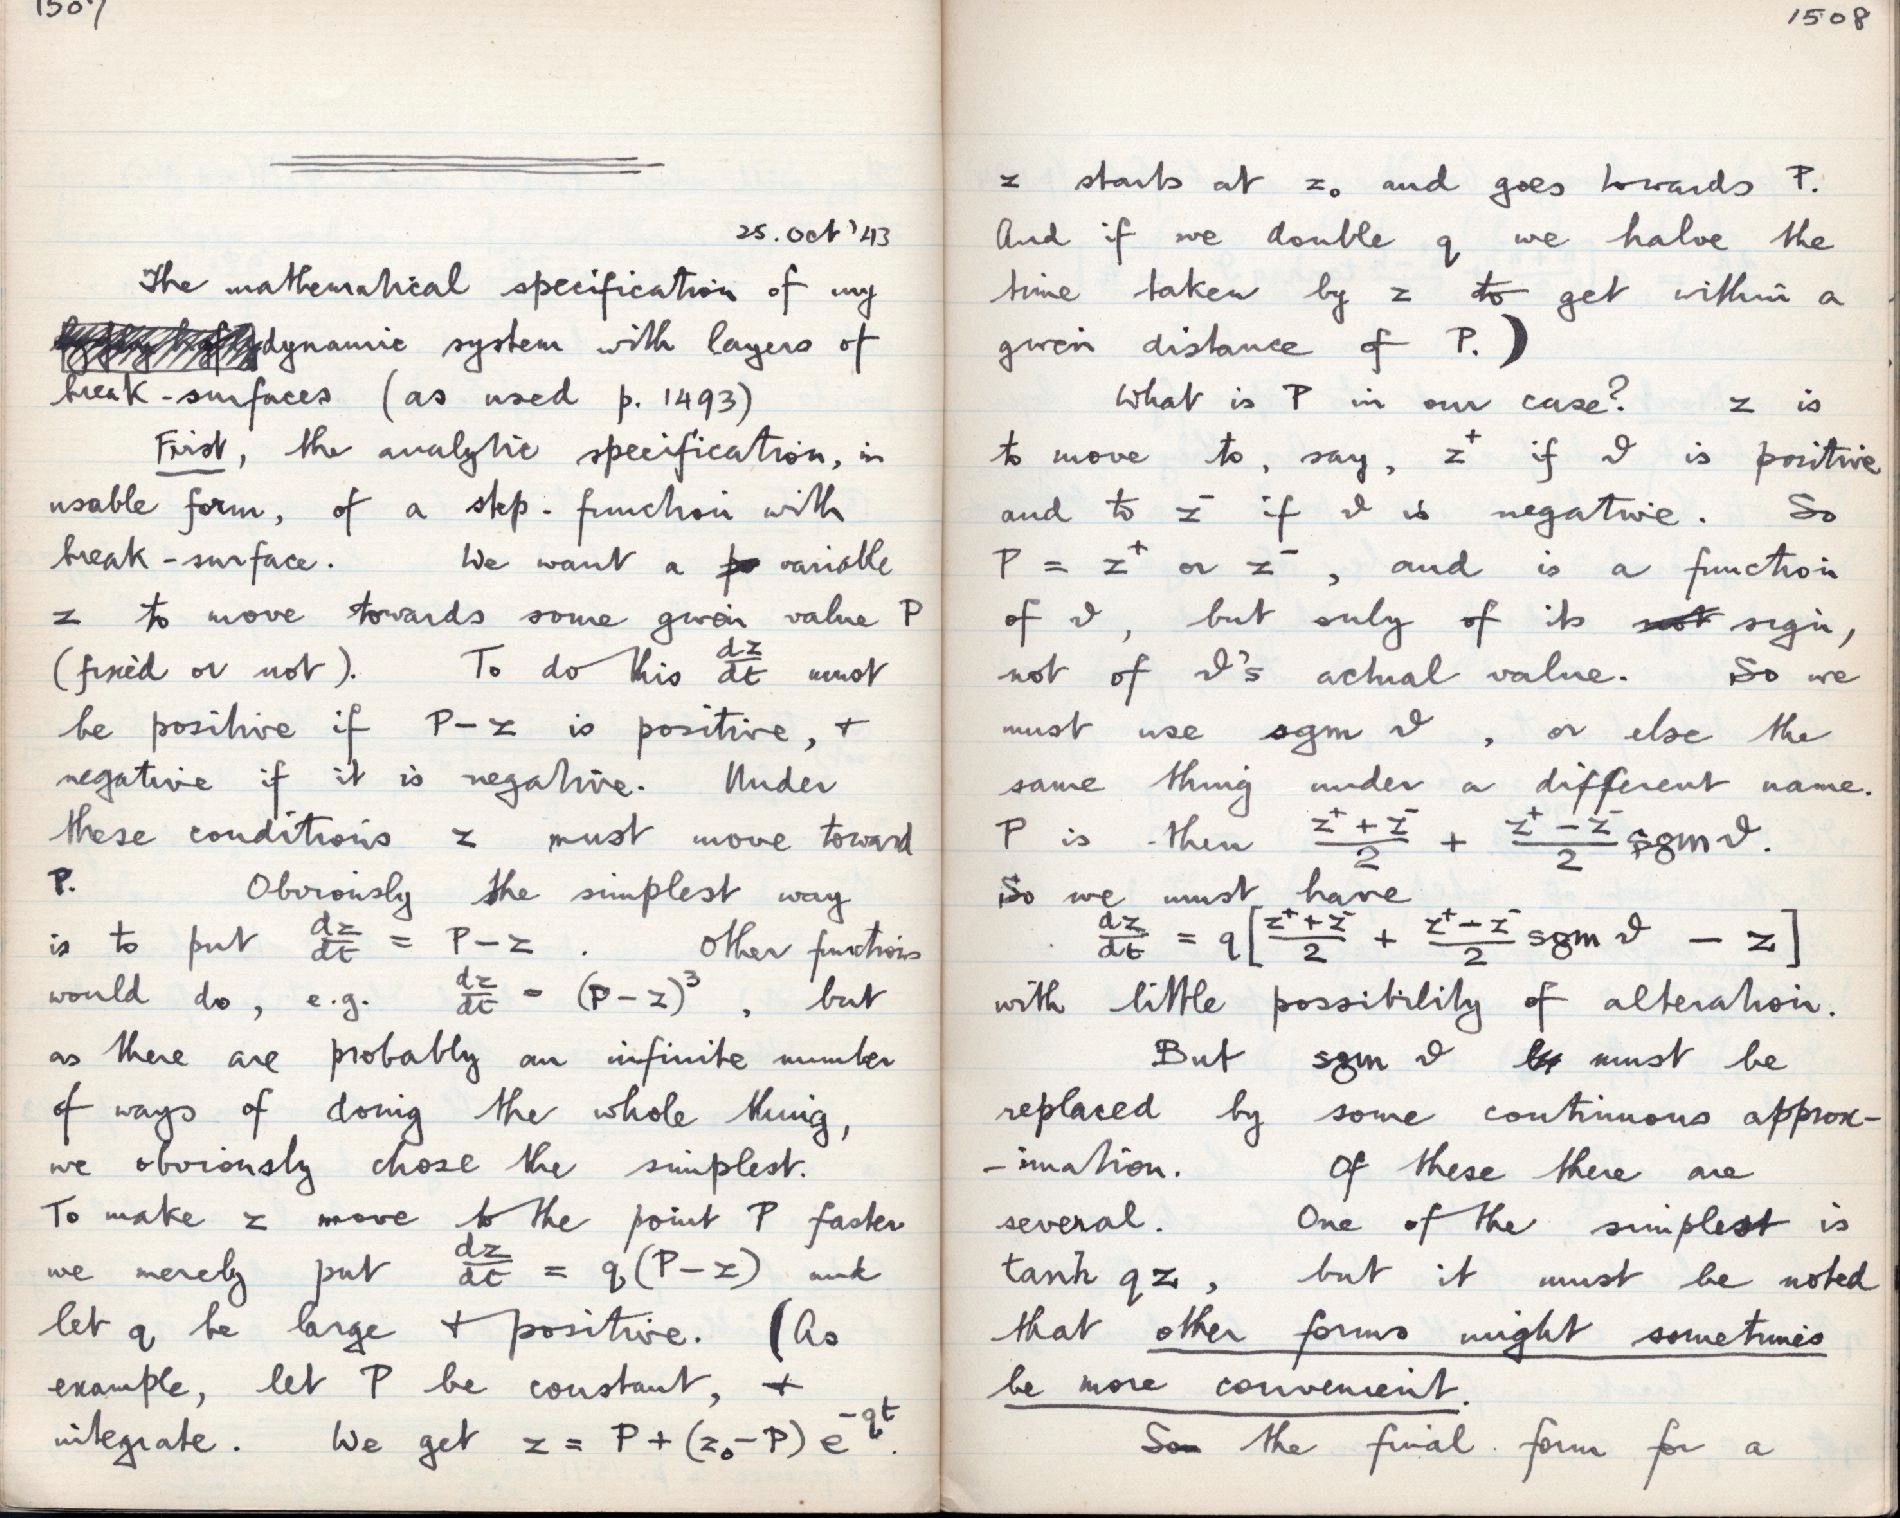 1507
25. Oct '43
The mathematical specification of my
dynamic system with layers of
break-surfaces (as used p. 1493)
First, the analytic specification, in
usable form, of a step-function with
break-surface. We want a variable
z to move towards some given value P
(fixed or not). To do this dz/dt must
be positive if P-z is positive, +
negative if it is negative. Under
these conditions z must move toward
P. Obviously the simplest way
is to put dz/dt = P-z . Other functions
would do, e.g. dz/dt = (P-z)³ , but
as there are probably an infinite number
of ways of doing the whole thing,
we obviously chose the simplest.
To make z move to the point P faster
we merely put dz/dt = q(P-z) and
let q be large + positive. (As
example, let P be constant, +
integrate. We get z = P + (z₀-P) e^{-qt}.
1508
z starts at z₀ and goes towards P.
And if we double q we halve the
time taken by z to get within a
given distance of P.)
What is P in our case? z is
to move to, say, z⁺ if ϑ is positive
and to z⁻ if ϑ is negative. So
P = z⁺ or z⁻, and is a function
of ϑ, but only of its sign,
not of ϑ's actual value. So we
must use sgm ϑ , or else the
same thing under a different name.
P is then (z⁺+z⁻)/2 + (z⁺-z⁻)/2 sgm ϑ.
So we must have
dz/dt = q[(z⁺+z⁻)/2 + (z⁺-z⁻)/2 sgm ϑ - z]
with little possibility of alteration.
But sgm ϑ must be
replaced by some continuous approx-
-imation. Of these there are
several. One of the simplest is
tanh qz, but it must be noted
that other forms might sometimes
be more convenient.
So the final form for a